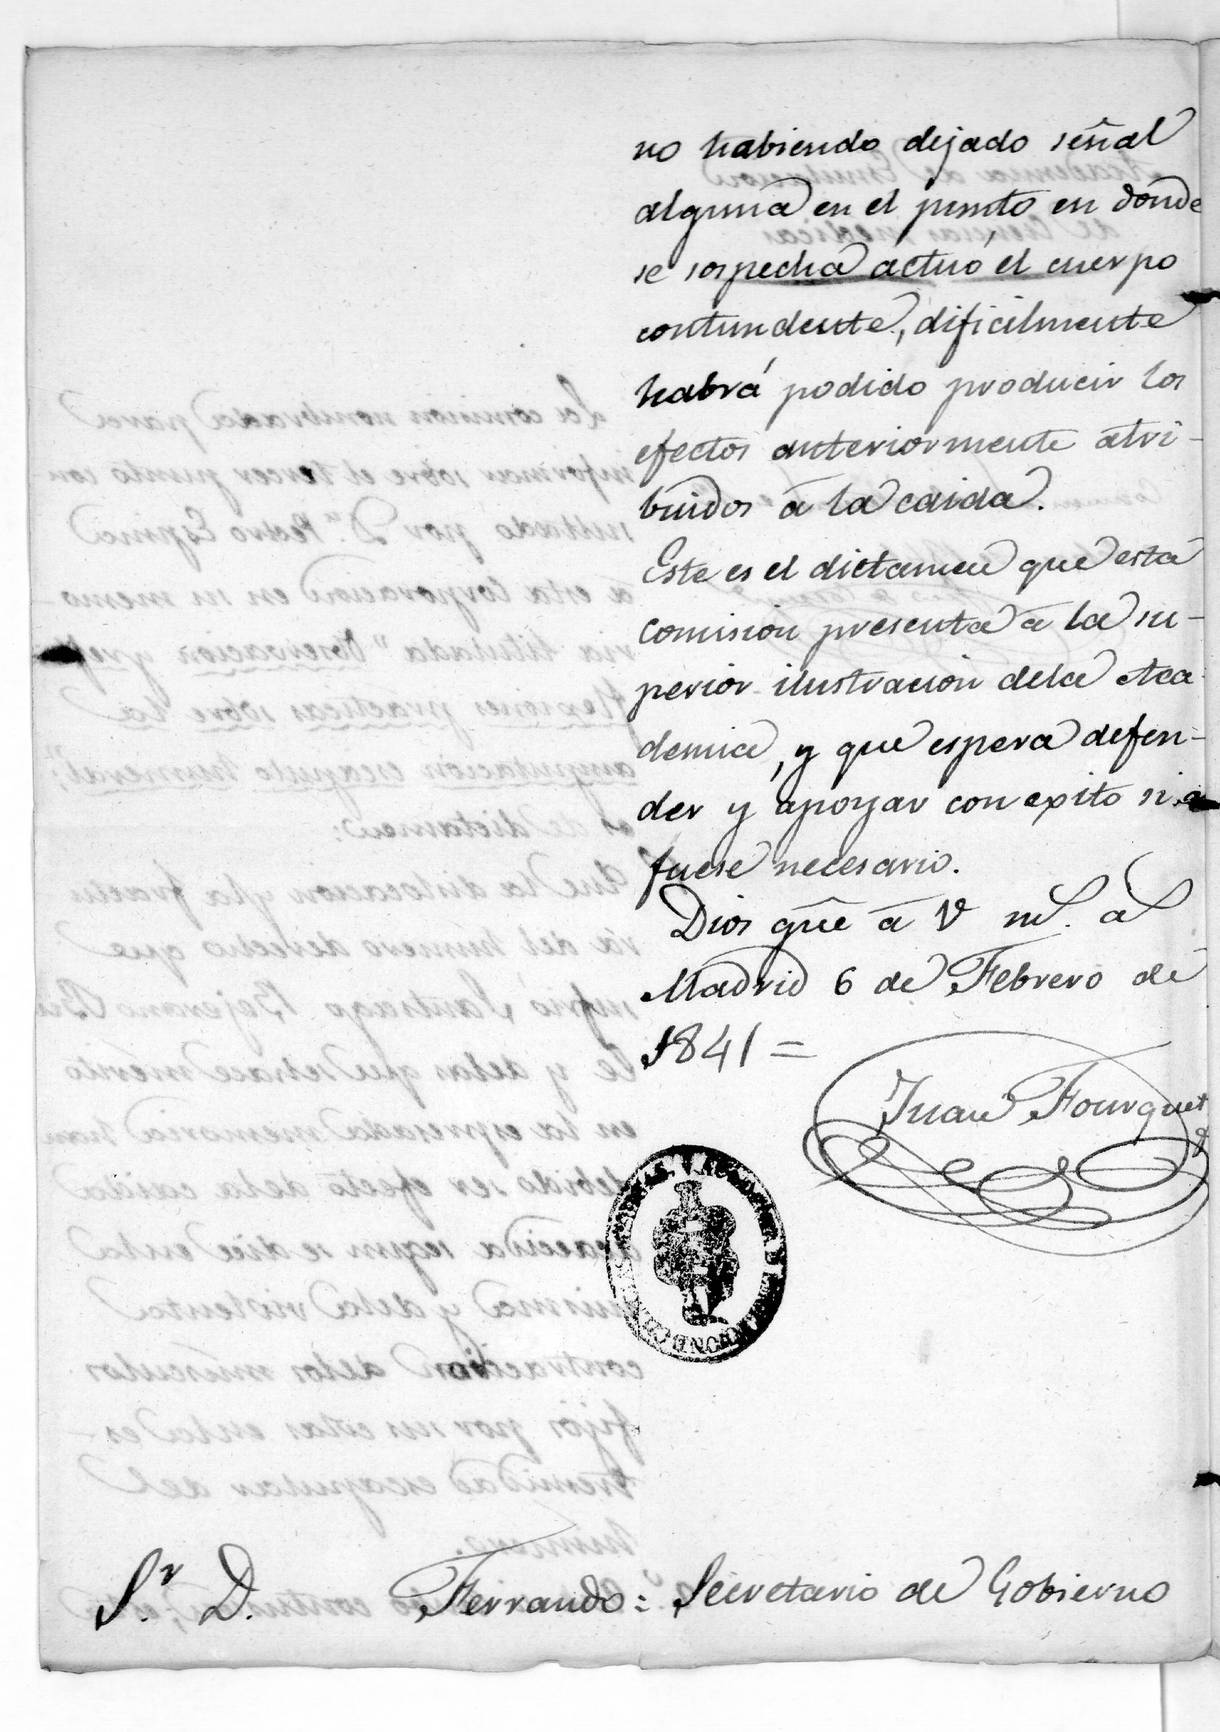 no habiendo dejado señal
alguna en el punto en donde
se sospecha actuó el cuerpo
contundente, dificilmente
habrá podido producir los
efectos anteriormente atri-
buidos á la caida.
Este es el dictamen que esta
comision presenta á la su-
perior ilustracion dela Aca-
demia, y que espera defen-
der y apoyar con exito si
fuese necesario.
Dios gũe á V ms. as
Madrid 6 de Febrero de
1841=
Juan Fourquet
Sr. D. Ferrando: Secretario de Gobierno